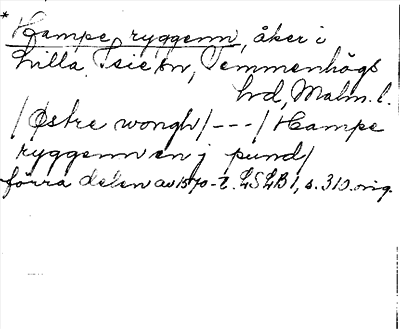 * Hampe ryggenn, åker i
Lilla Isie sn, Vemmenhögs
hd, Malm. l.
/Østre wongh/---/Hampe
ryggenn en j pund/
förra delen av 1570-t. LSLB 1, s. 310. orig.